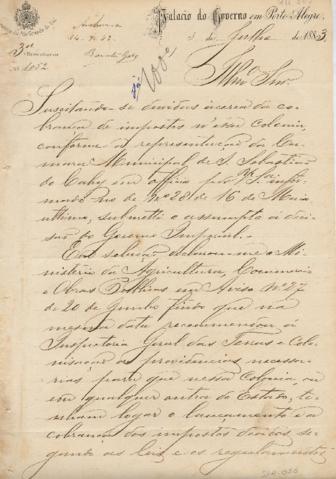 Palacio do Governo em Porto Alegre,
3 de Julho de 1883
3ª
Nº 1052
Illmo Snr.
Suscitando-se duvidas ácerca da co-
brança de impostos n'essa Colonia,
conforme a representação da Ca-
mara Municipal de S. Sebastião
do Cahy em officio por V. Sa. infor-
mado no de nº 28 de 16 de Maio
ultimo, submetti o assumpto á deci-
são do Governo Imperial.
Em solução declarou-me o Mi-
nisterio da Agricultura, Commercio
e Obras Publicas em Aviso nº 27
de 20 de Junho findo que na
mesma data recommendou á
Inspectoria Geral das Terras e Colo-
nisação as providencias necessa-
rias para que nessa Colonia ou
em qualquer outra do Estado, te-
nham logar o lançamento e a
cobrança dos impostos devidos se-
gundo as leis e os regulamentos